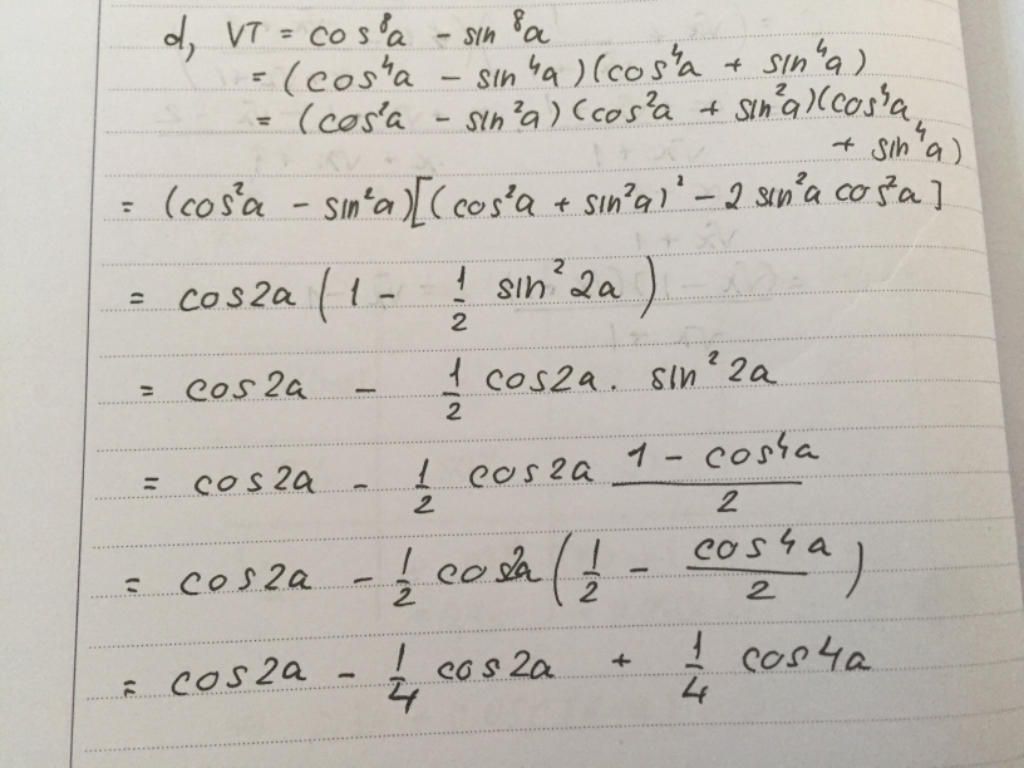 d, VT = cos⁸a - sin⁸a
= (cos⁴a - sin⁴a)(cos⁴a + sin⁴a)
= (cos²a - sin²a)(cos²a + sin²a)(cos⁴a
+ sin⁴a)
= (cos²a - sin²a)[(cos²a + sin²a)² - 2 sin²a cos²a]
= cos2a (1 - 1/2 sin²2a)
= cos2a - 1/2 cos2a. sin²2a
= cos2a - 1/2 cos2a (1 - cos4a)/2
= cos2a - 1/2 cos2a (1/2 - cos4a/2)
= cos2a - 1/4 cos2a + 1/4 cos4a